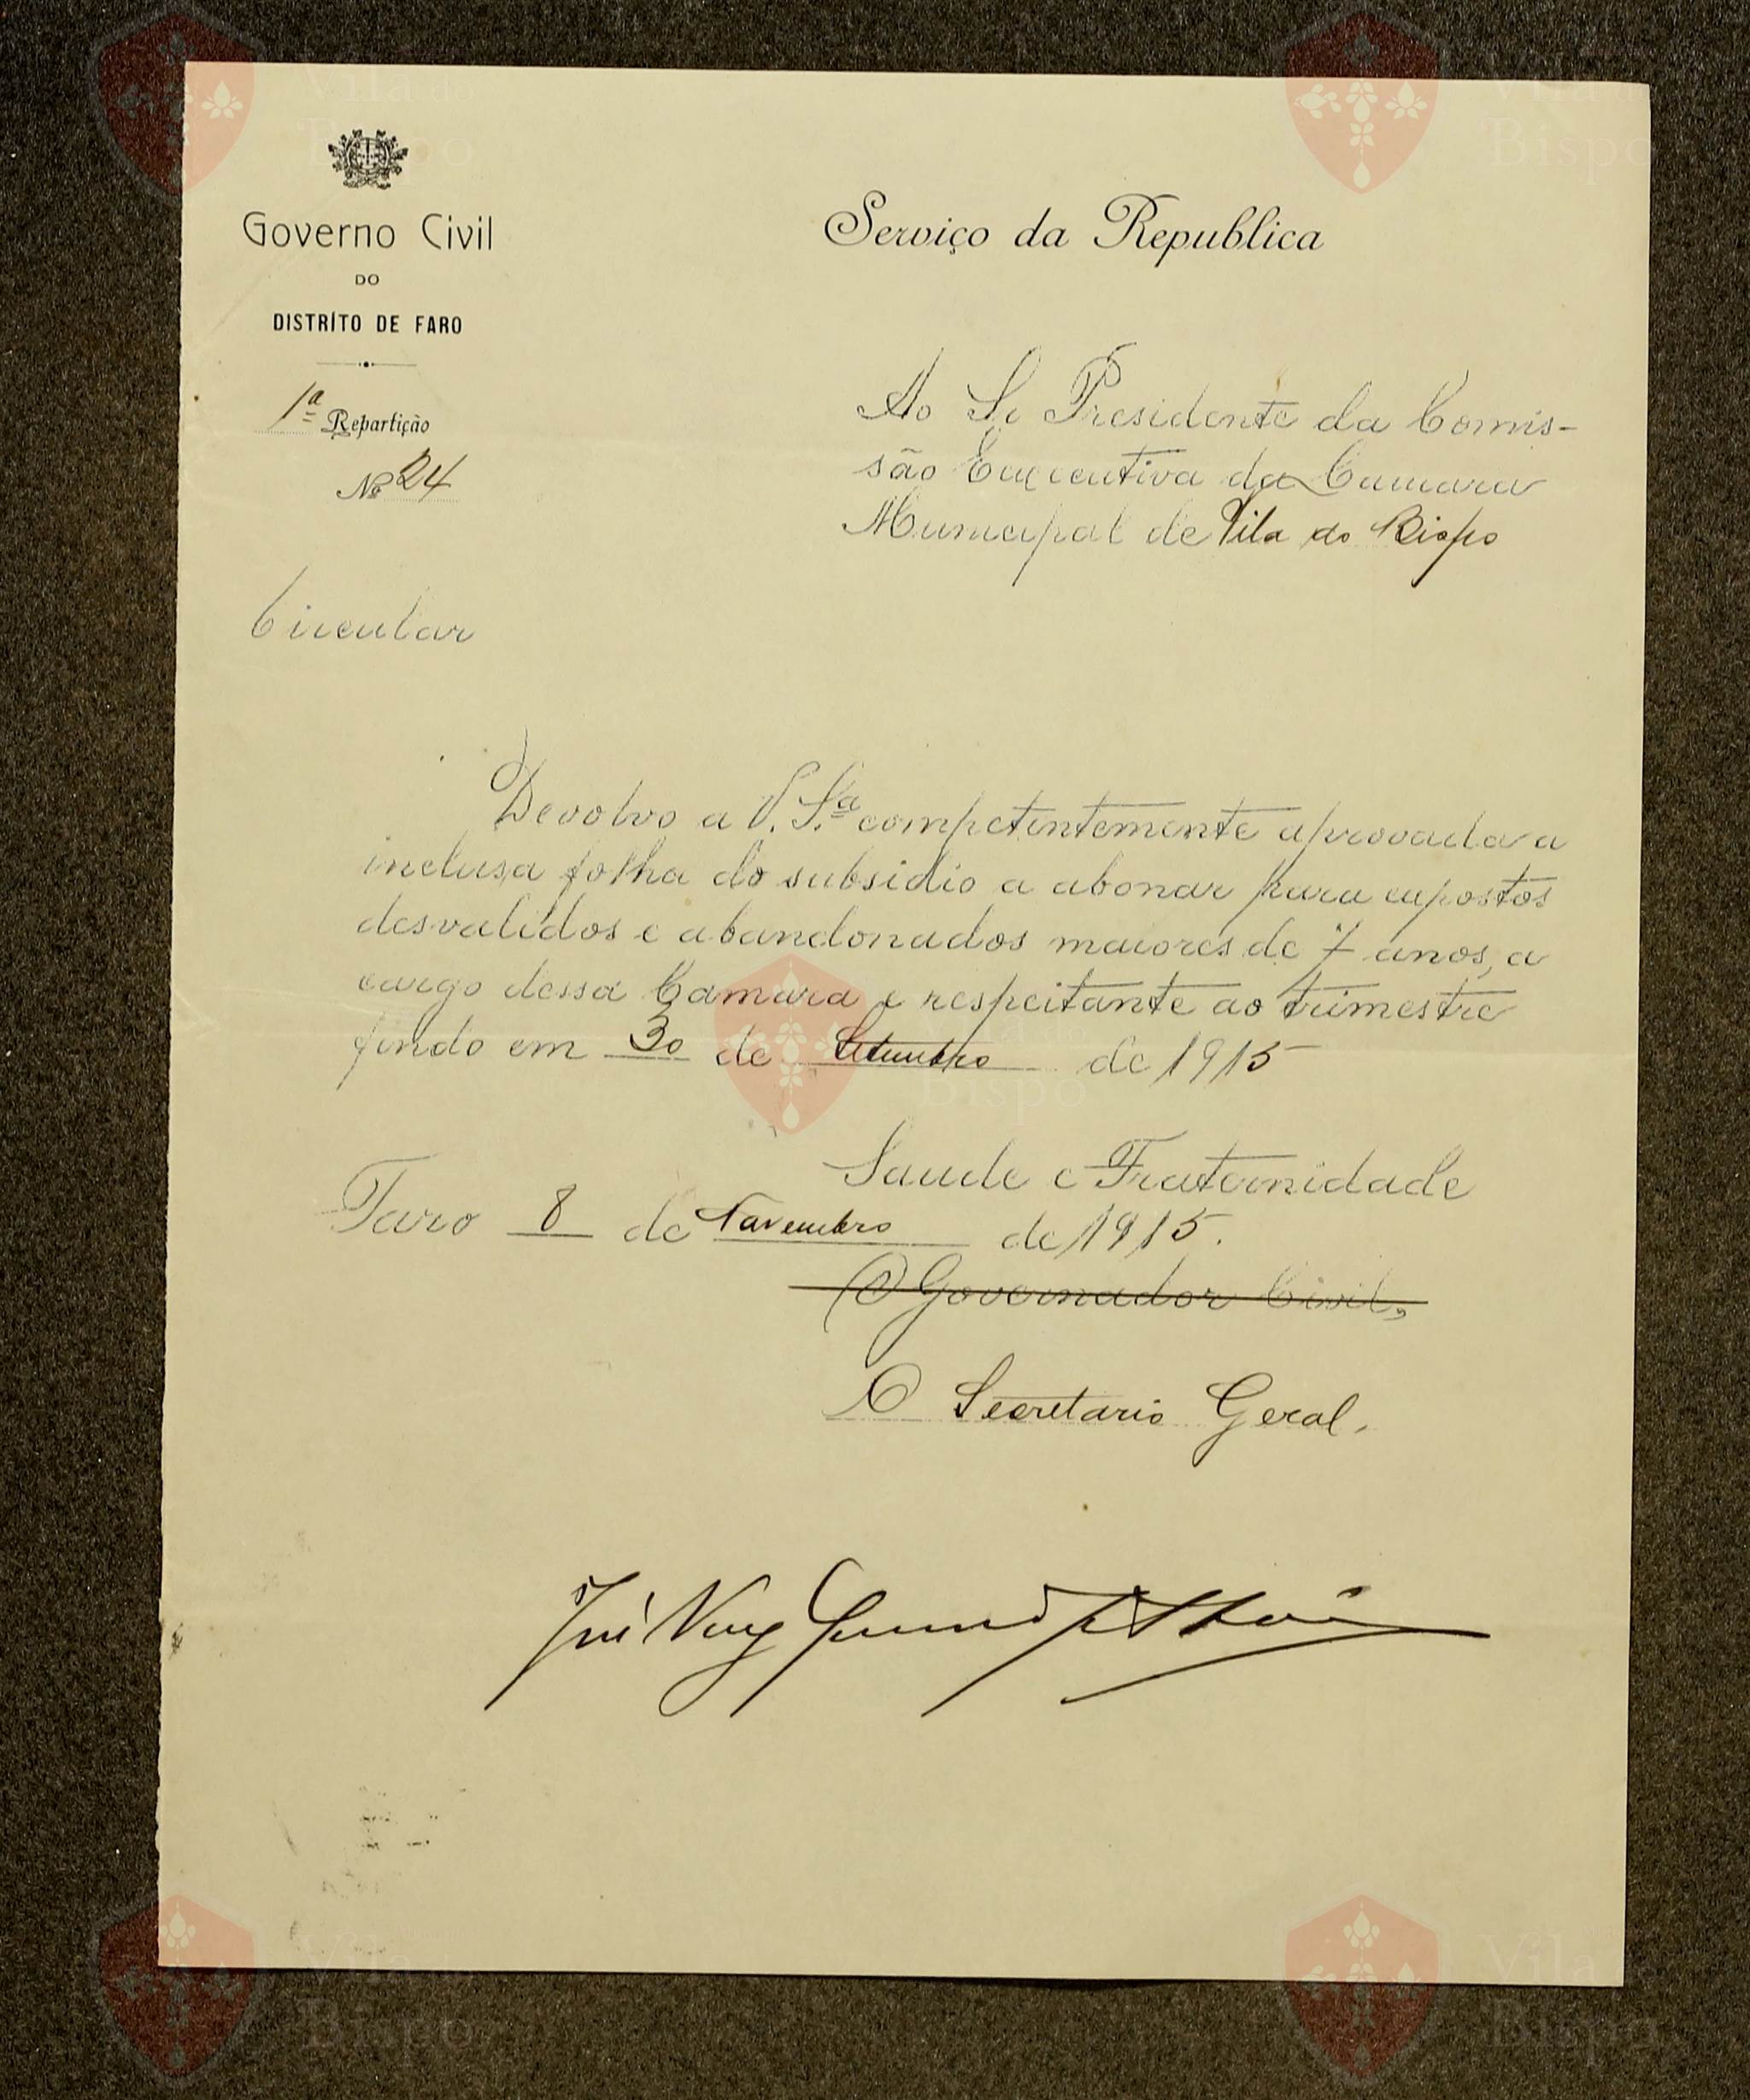 Governo Civil
DO
DISTRÍTO DE FARO
1ª Repartição
Nº 24
Serviço da Republica
Ao Sr Presidente da Comis-
são Executiva da Camara
Municipal de Vila do Bispo
Circular
Devolvo a V. S.ª competentemente aprovada a
inclusa folha do subsidio a abonar para expostos
desvalidos e abandonados maiores de 7 anos, a
cargo dessa Camara e respeitante ao trimestre
findo em 30 de Setembro de 1915
Saude e Fraternidade
Faro 8 de Novembro de 1915.
O Governador Civil,
O Secretario Geral,
José
Vila do
Bispo
Vila do
Bispo
Bispo
Vila do
Bispo
Vila do
Bispo